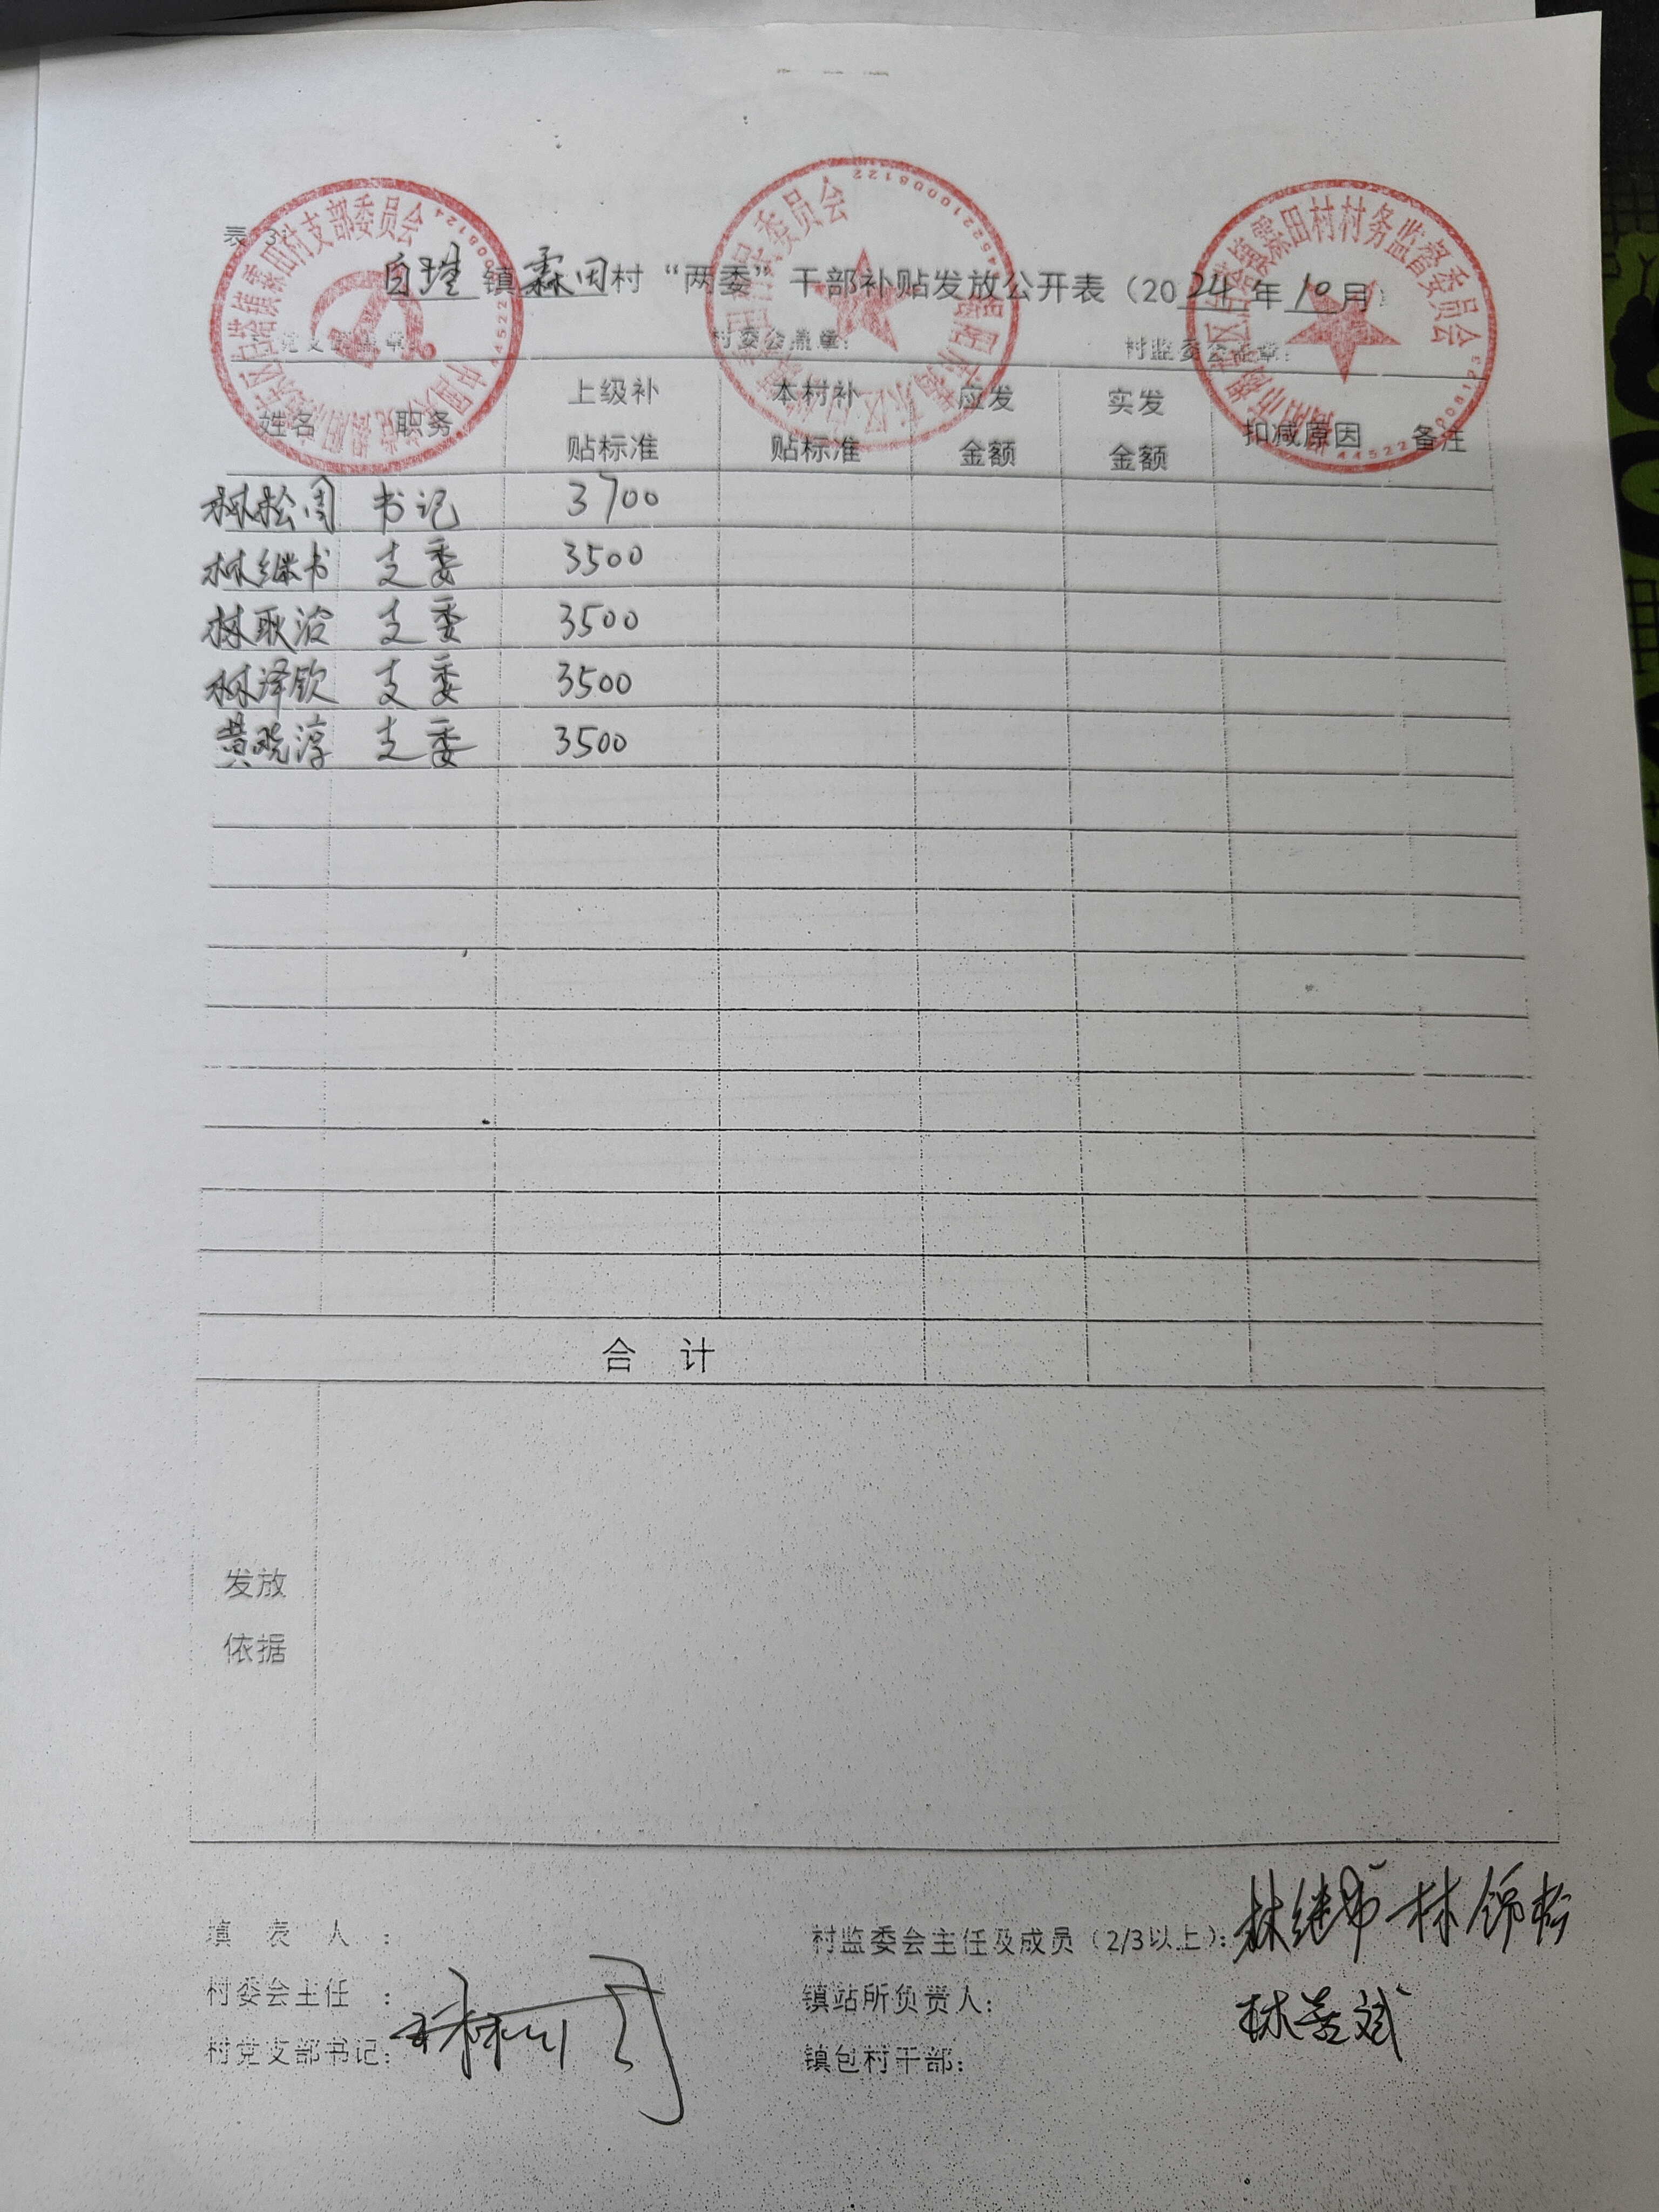 表 3
白塔镇霖田村“两委”干部补贴发放公开表（2024年10月）
村委会盖章：
村监委会盖章：
姓名 职务 上级补贴标准 本村补贴标准 应发金额 实发金额 扣减原因 备注
林松周 书记 3700
林继书 支委 3500
林耿洽 支委 3500
林泽钦 支委 3500
黄晓淳 支委 3500
合 计
发放
依据
填 表 人 ：
村监委会主任及成员（2/3以上）：
村委会主任 ：
镇站所负责人：
村党支部书记：
镇包村干部：